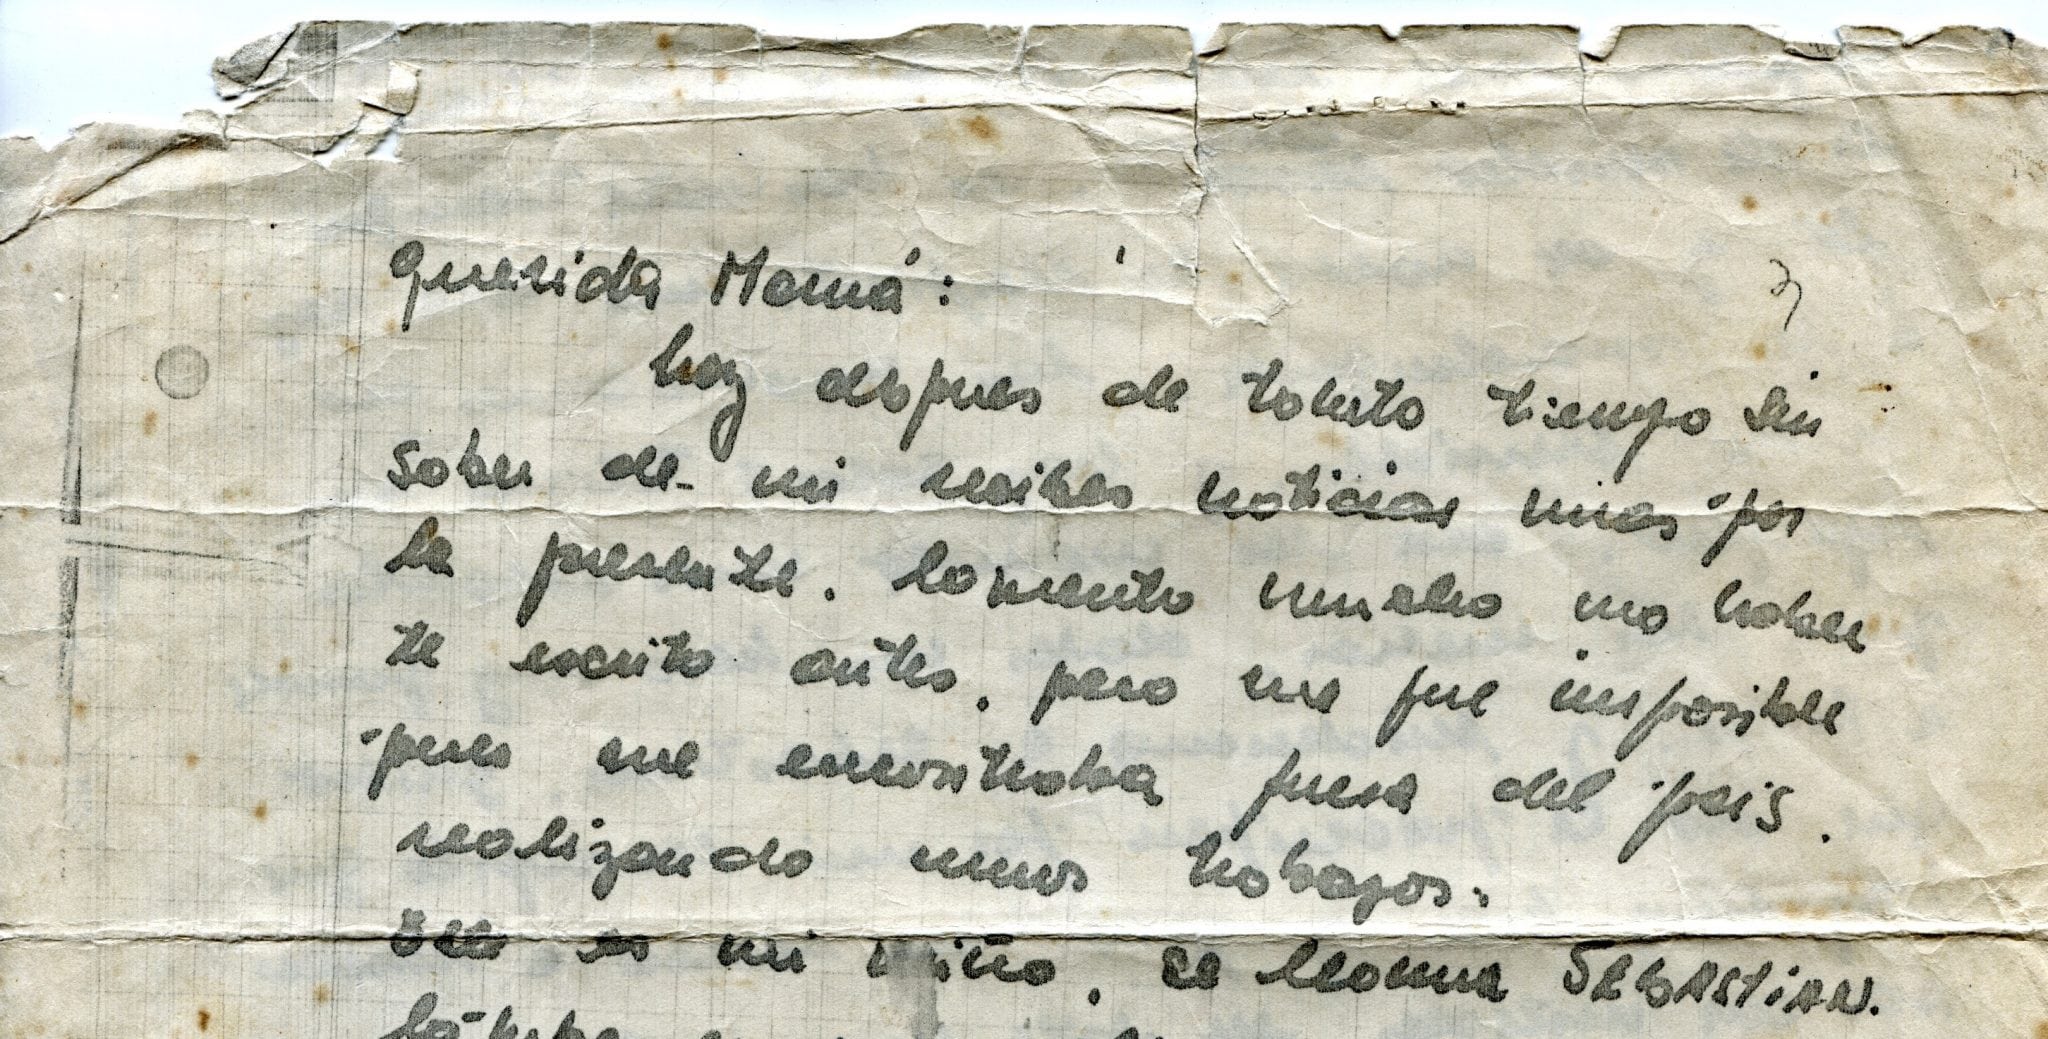 Querida Mamá:
hoy despues de tanto tiempo sin
saber de mi recibes noticias mias por
la presente. lamento mucho no haber
te escrito antes, pero me fue imposible
pues me encontraba fuera del pais.
realizando unos trabajos.
Este es mi niño, se llama SEBASTIAN.